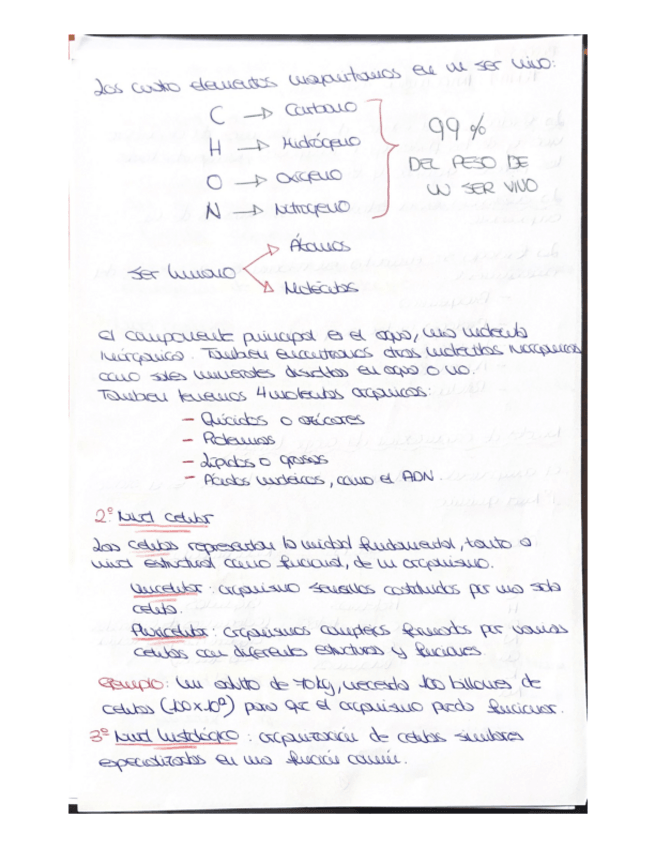 Los cuatro elementos mayoritarios en un ser vivo:
C → Carbono
H → Hidrógeno
O → Oxígeno
N → Nitrógeno
99%
DEL PESO DE
UN SER VIVO
Ser humano
Átomos
Moléculas
El componente principal es el agua, una molécula
inorgánica. También encontramos otras moléculas inorgánicas
como sales minerales disueltas en agua o no.
También tenemos 4 moléculas orgánicas:
- Glúcidos o azúcares
- Proteínas
- Lípidos o grasas
- Ácidos nucleicos, como el ADN.
2º Nivel Celular
Las células representan la unidad fundamental, tanto a
nivel estructural como funcional, de un organismo.
Unicelular: organismo constituidos por una sola
célula.
Pluricelular: organismos complejos formados por varias
células con diferentes estructuras y funciones
Ejemplo: Un adulto de 70kg, necesita 100 billones de
células para que el organismo pueda funcionar.
3º Nivel histológico: organización de células similares
especializadas en una función común.